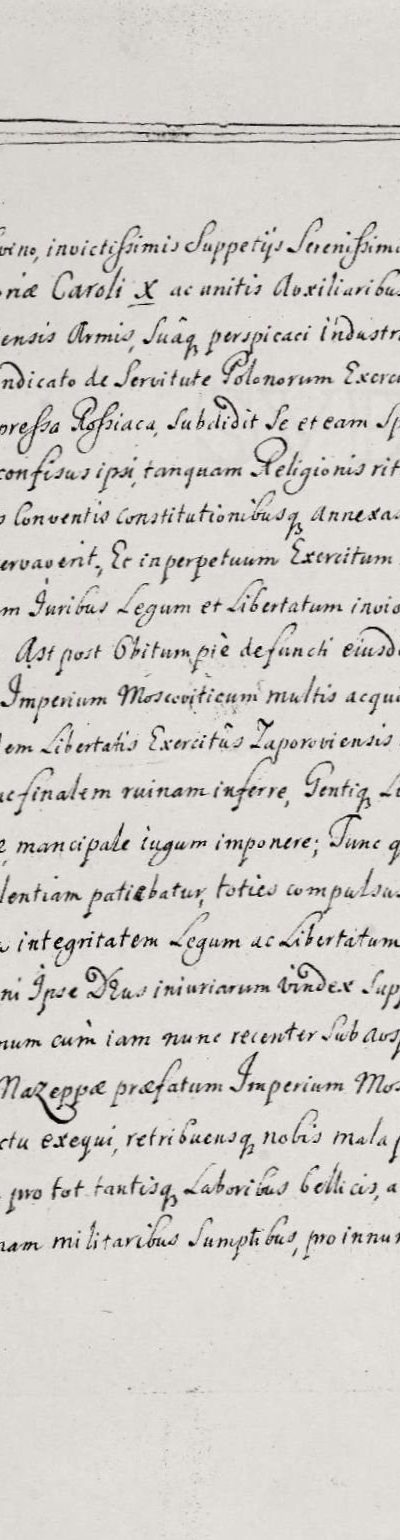 vino, invictissimis Suppetijs Serenissima
riæ Caroli X ac unitis Auxiliaribus
ensis Armis, Suâq; perspicaci industr
ndicato de Servitute Polonorum Exerci
pressa Rossiaca, Subdidit Se et eam Sp
confisus ipsi, tanquam Religionis rit
s Conventis constitutionibusq; annexas
ervaverit, Et in perpetuum Exercitum
m Iuribus Legum et Libertatum invio
Ast post Obitum piè defuncti eiusd
Imperium Moscoviticum multis acqu
em Libertatis Exercitûs Zaporoviensis
ac finalem ruinam inferre, Gentiq; L
mancipale iugum imponere; Tunc q
lentiam patiebatur, toties compulsus
integritatem Legum ac Libertatum
ni Ipse DEus iniuriarum vindex Supp
num cum iam nunc recenter Sub Ausp
Mazeppæ præfatum Imperium Mos
ctu exequi, retribuensq; nobis mala p
pro tot tantisq; Laboribus bellicis, a
nam militaribus Sumptibus, pro innu